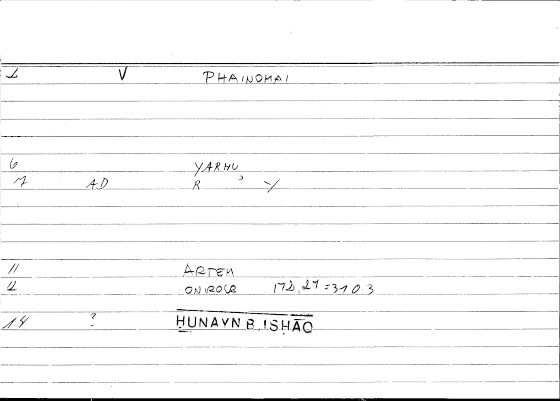 1 V PHAINOMAI
6 YARHU,
7 AD R Y
11 ARTEM
12 ONIROCR 172,27 = 310.3
14 ? ḤUNAYN B. ISḤĀQ